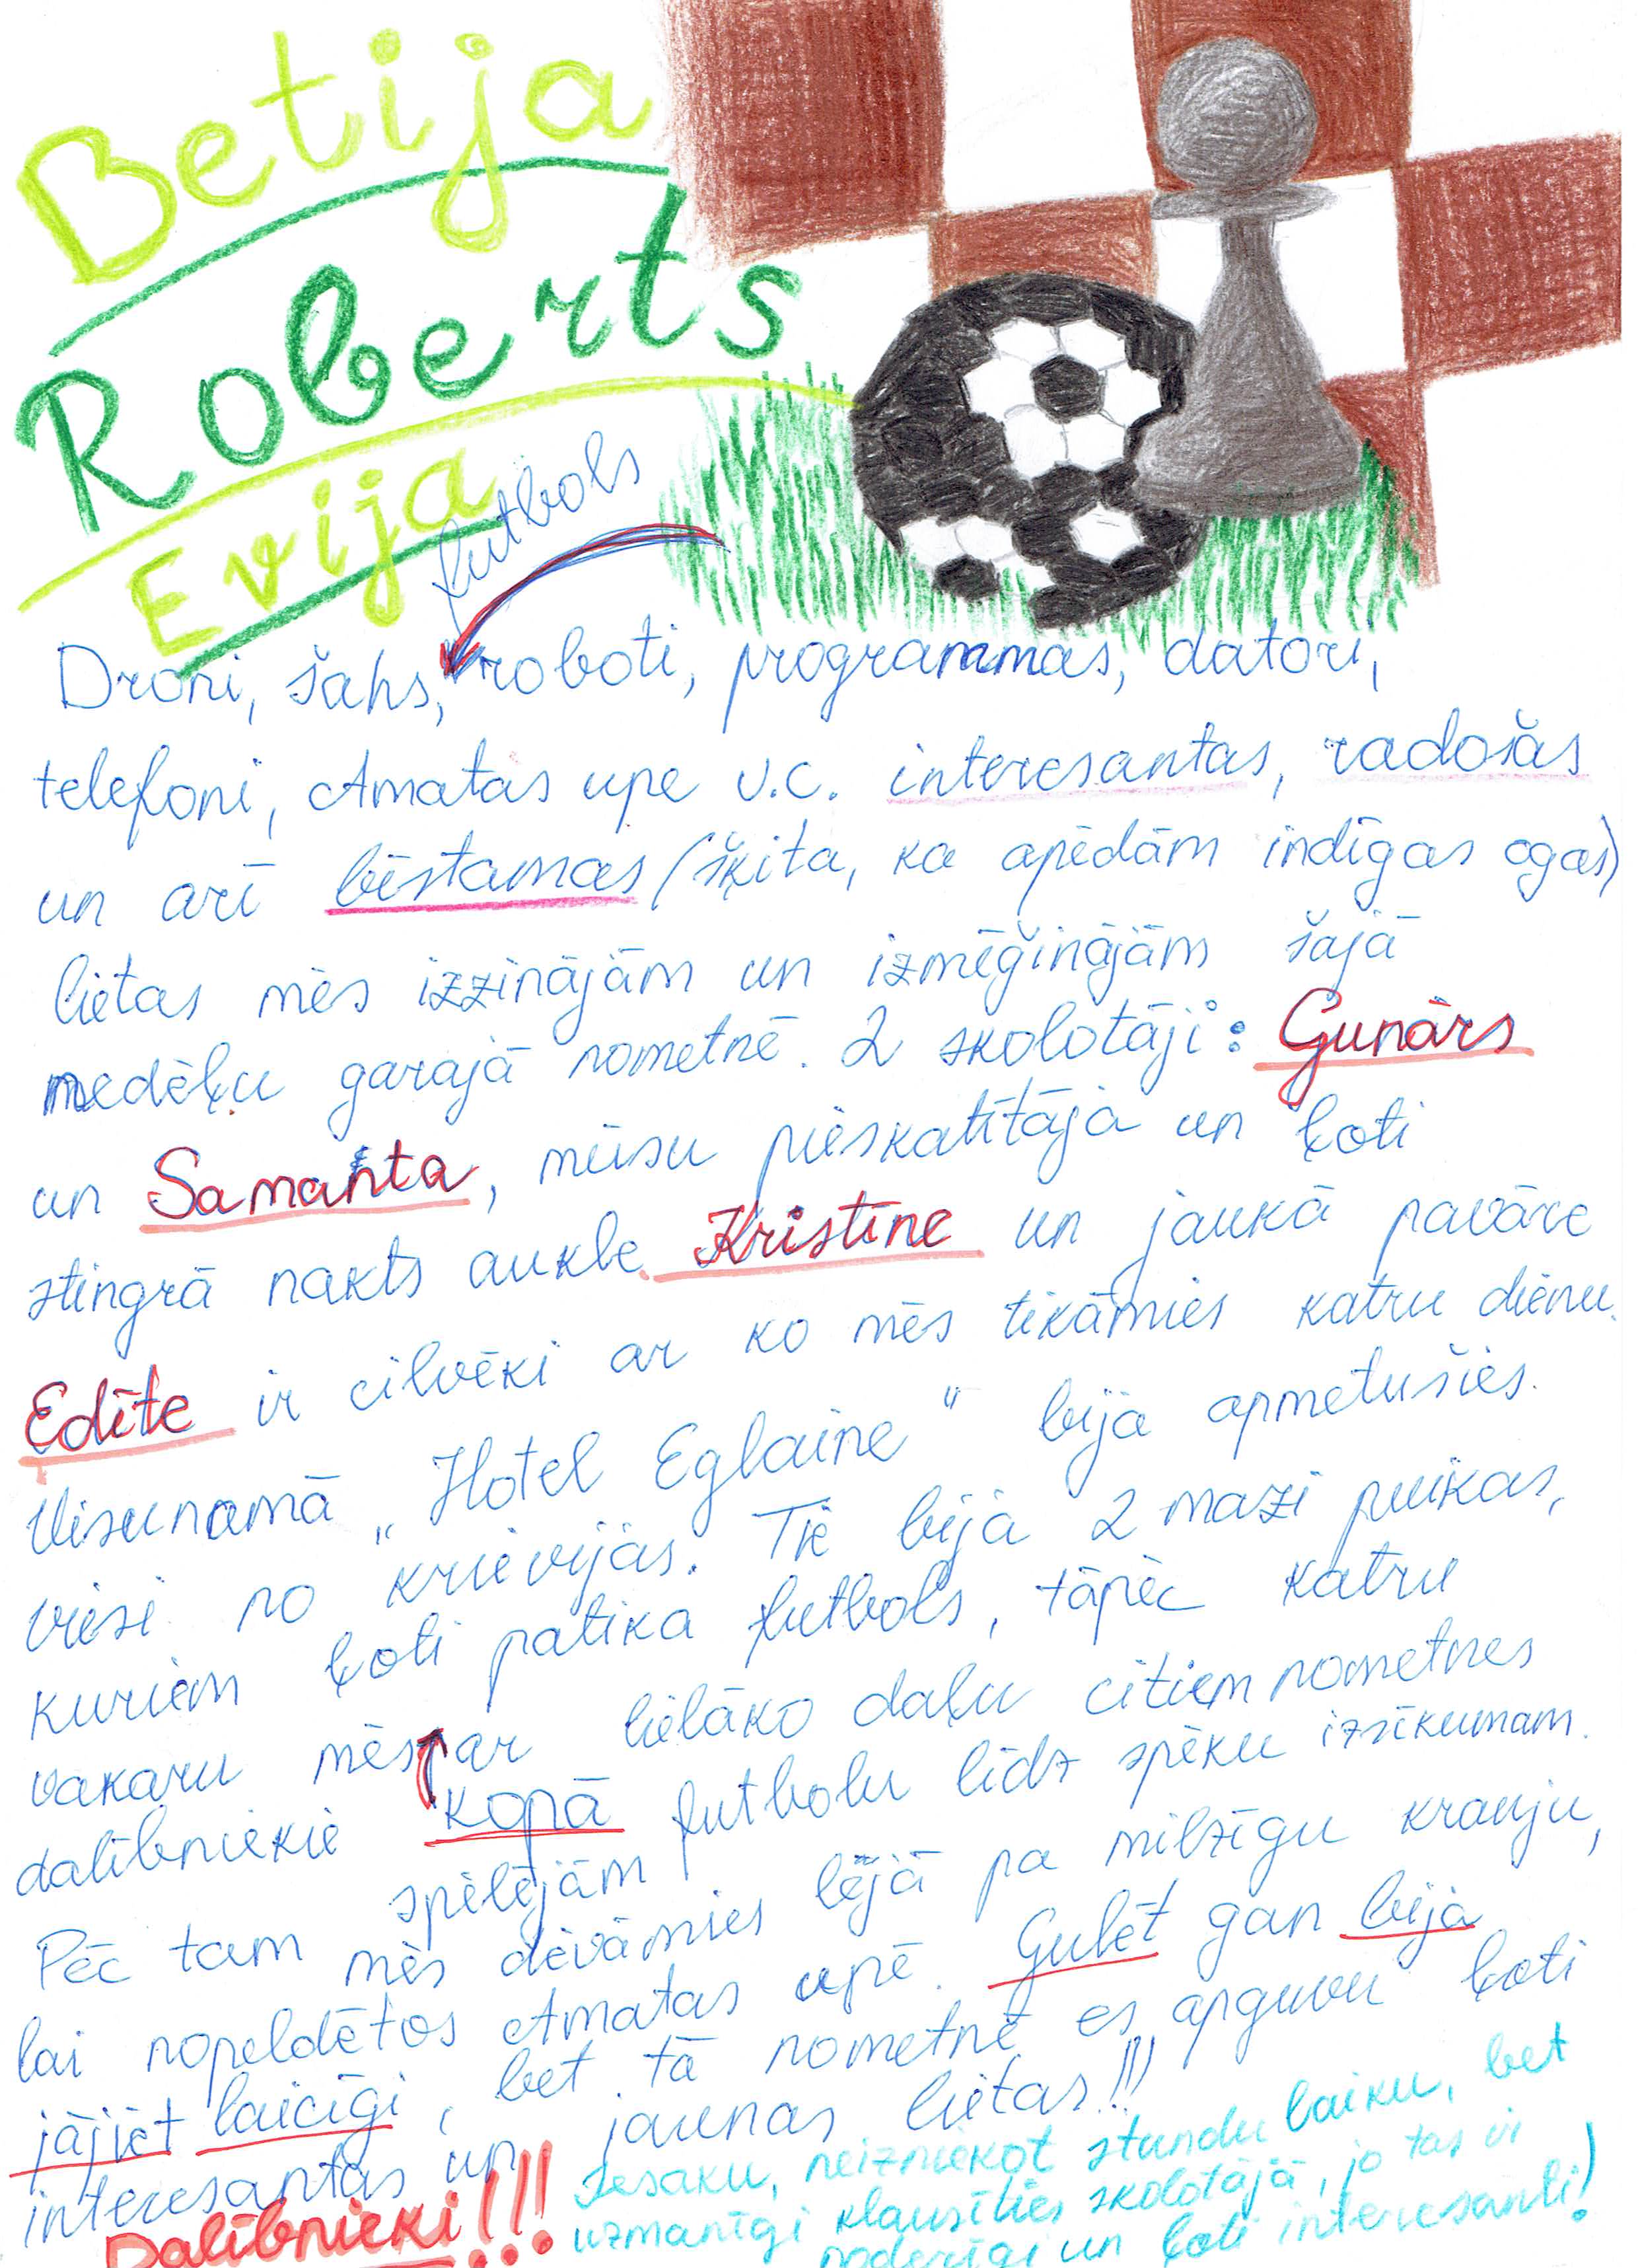 Betija
Roberts
Evija
futbols
Droni, šahs, roboti, programmas, datori,
telefoni, Amatas upe u.c. interesantas, radošas
un arī bēstamas (šķita, ka apēdām indīgas ogas)
lietas mēs izzinājām un izmēģinājām šajā
nedēļu garajā nometnē. 2 skolotāji: Gunārs
un Samanta, mūsu pieskatītāja un ļoti
stingrā nakts aukle Kristīne un jaukā pavāre
Edīte ir cilvēki ar ko mēs tikāmies katru dienu.
Visunamā „Hotel Eglaine" bija apmetušies
viesi no krievijas. Tie bija 2 mazi puikas,
kuriem ļoti patika futbols, tāpēc katru
vakaru mēs ar lielāko daļu citiem nometnes
dalībniekie kopā futbolu līdz spēku izsīkumam.
spēlējām
Pēc tam mēs devāmies lejā pa milzīgu krauju,
lai nopeldētos Amatas upē. Gulēt gan bija
jājiet laicīgi, bet tā nometnē es apguvu ļoti
interesantas un jaunas lietas!!!
Dalībnieki!!!
Iesaku, neizniekot stundu laiku, bet
uzmanīgi klausīties skolotājā, jo tas ir
noderīgi un ļoti interesanti!